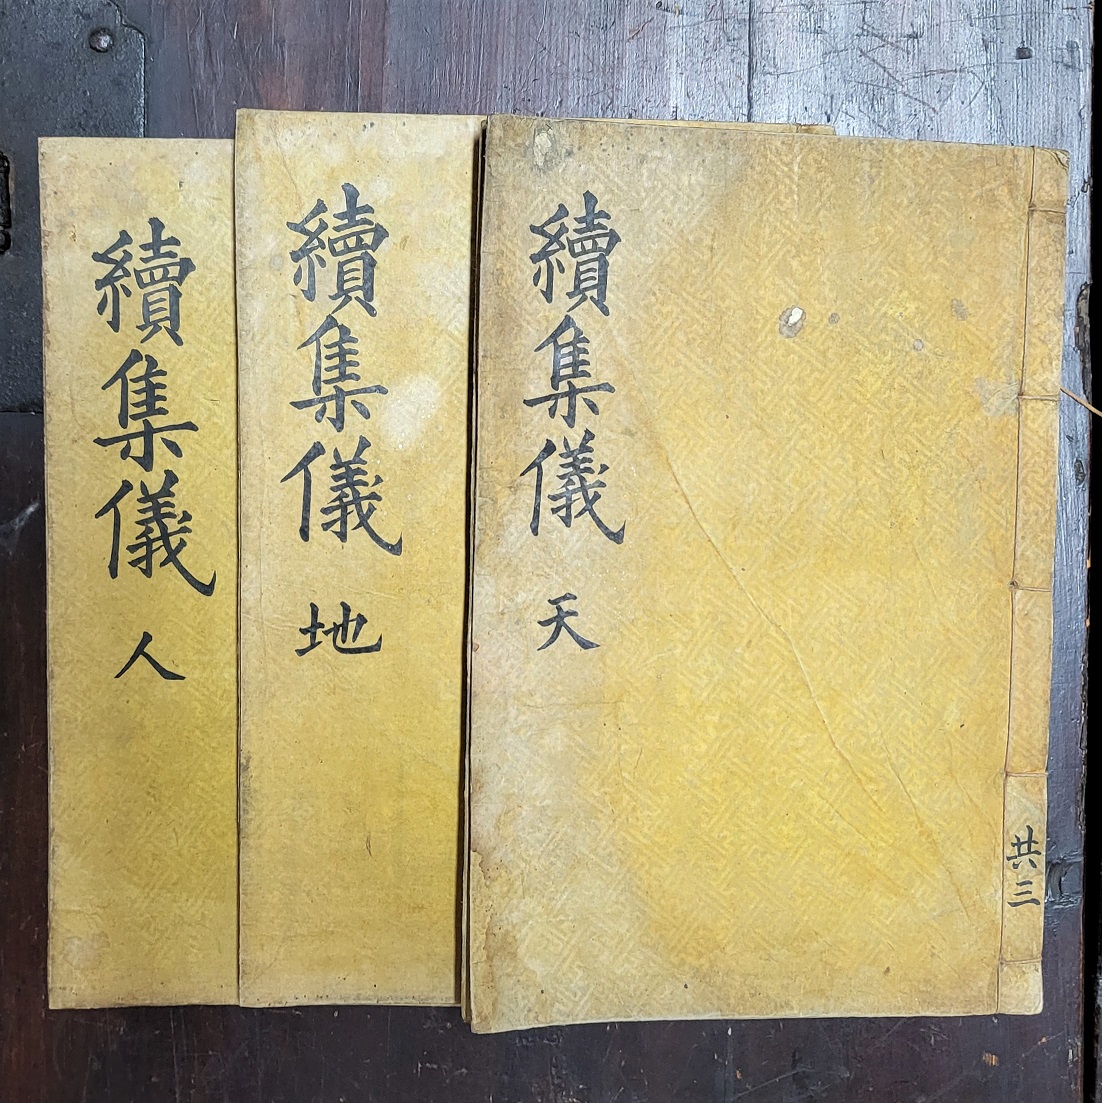 續集儀 天
共三
續集儀 地
續集儀 人